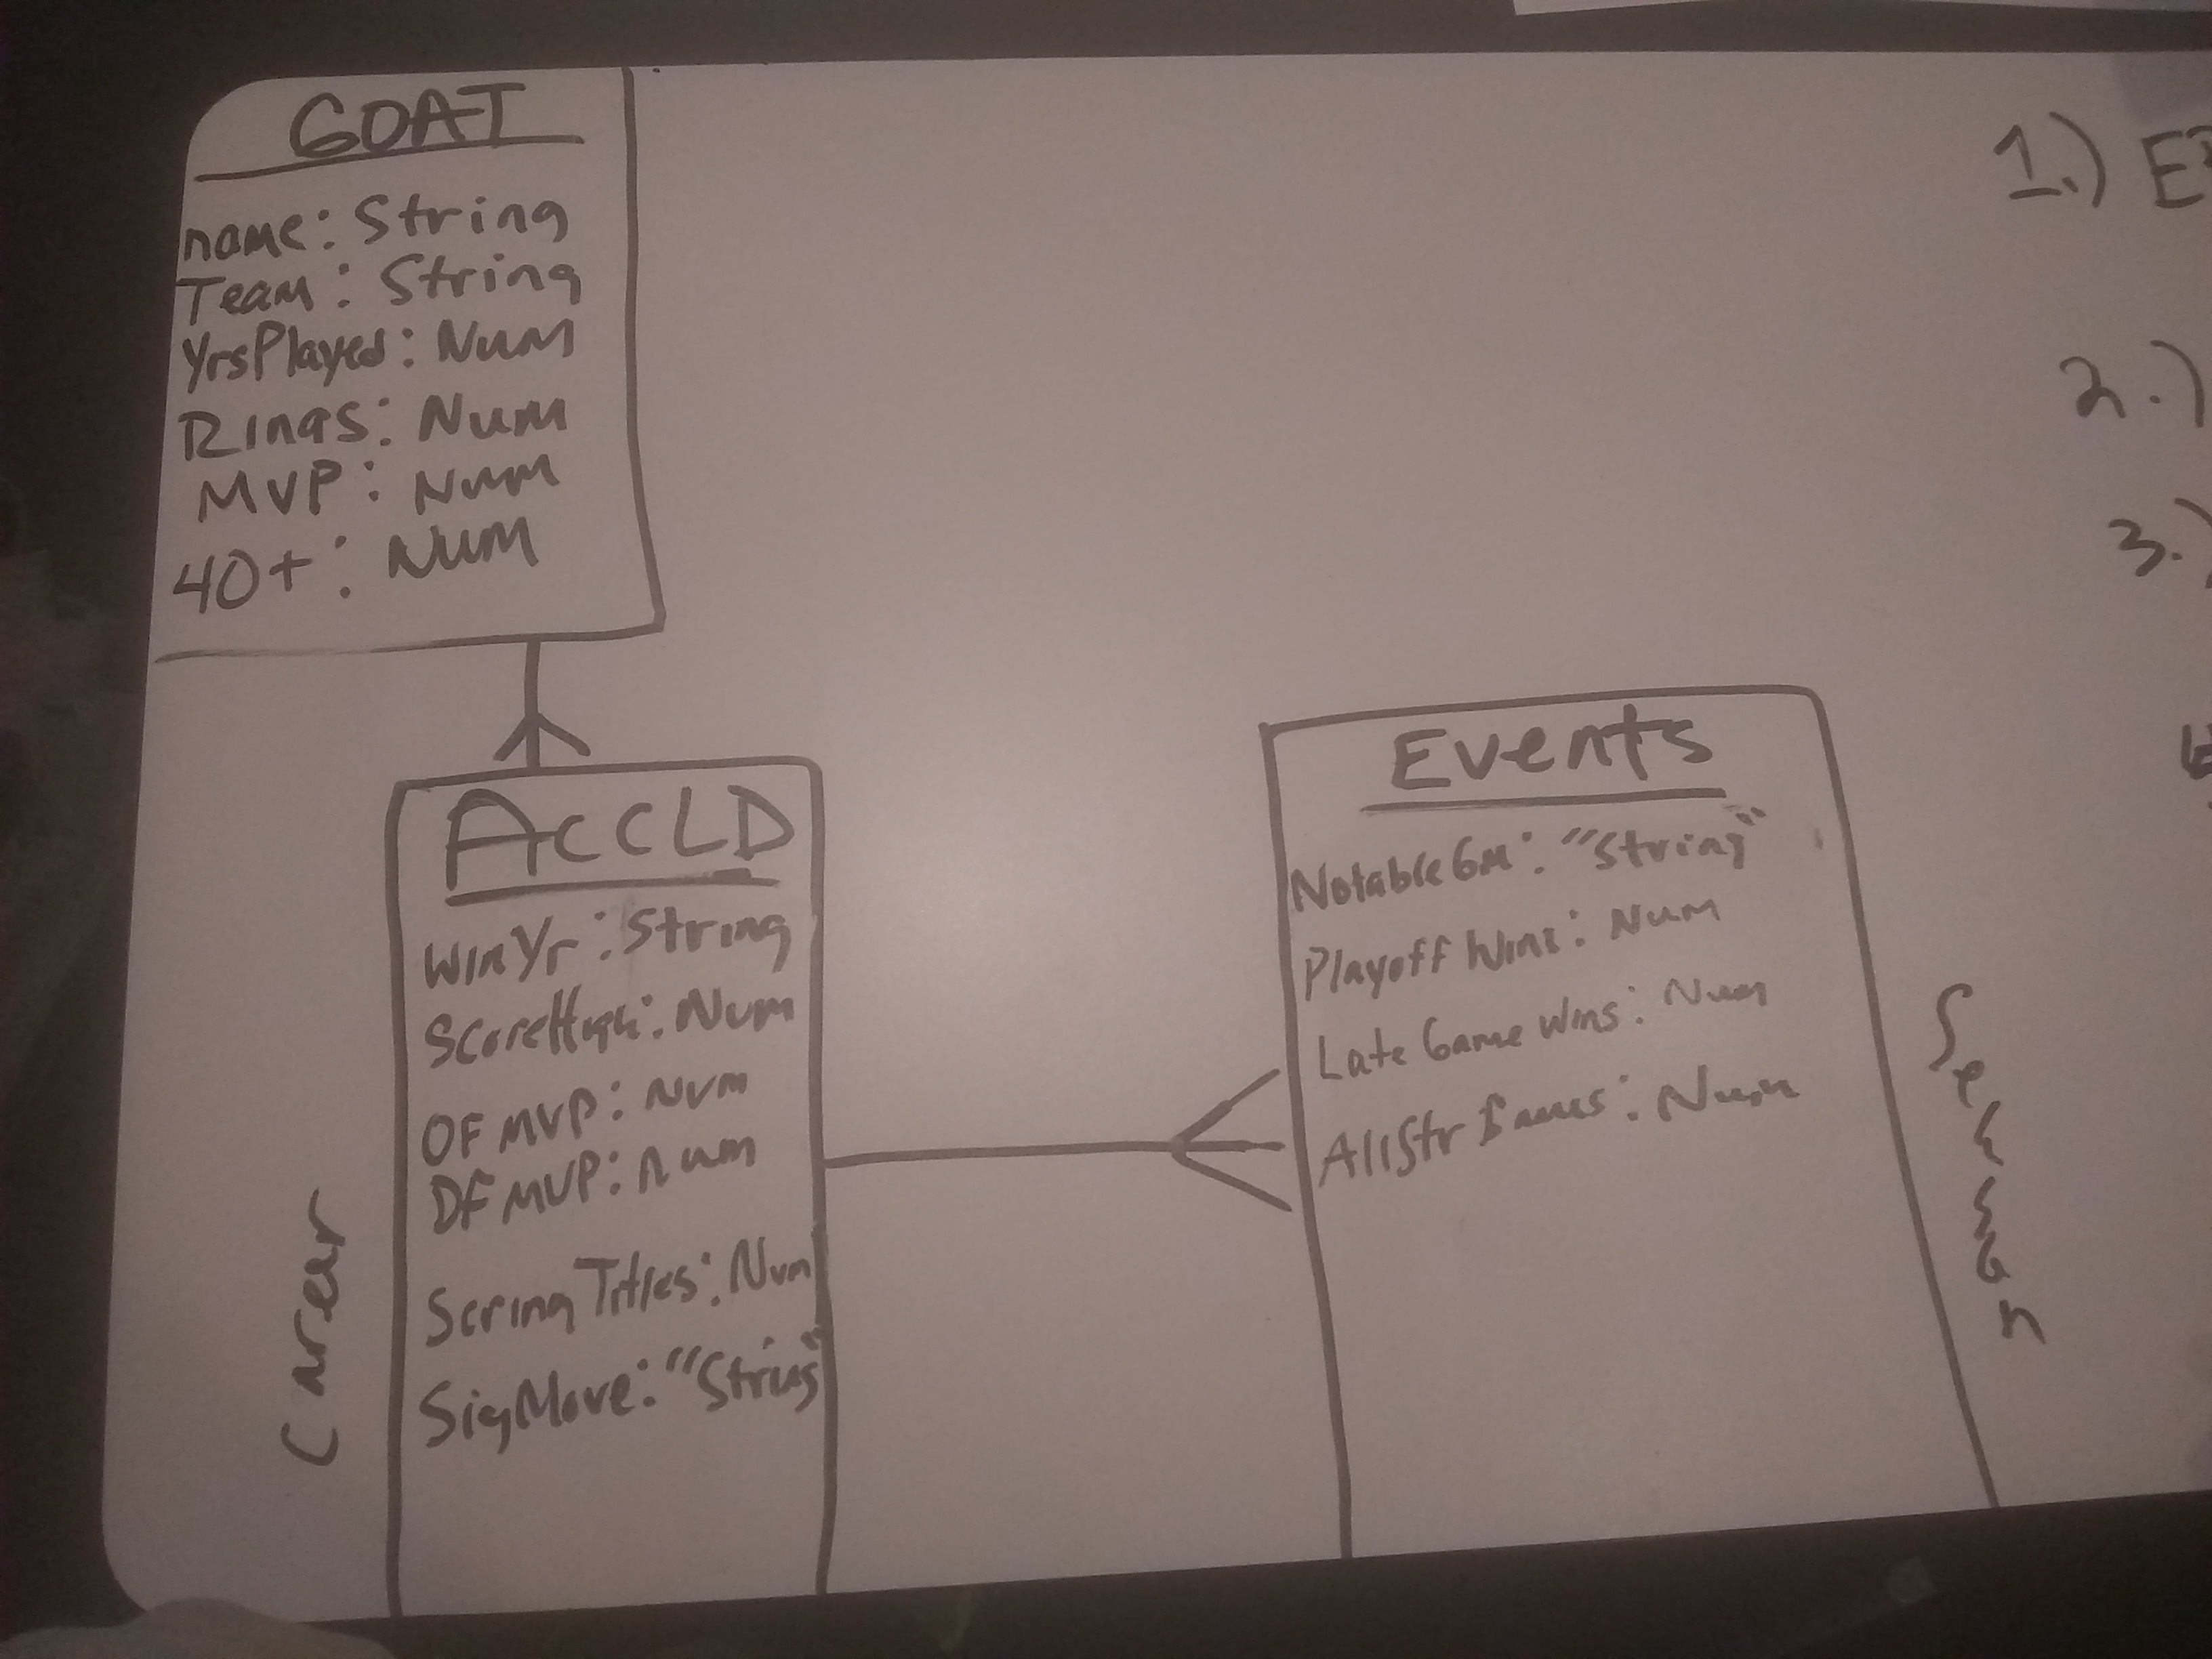 GOAT
name: String
Team: String
YrsPlayed: Num
Rings: Num
MVP: Num
40+: Num
AccLD
WinYr: String
ScoreHigh: Num
OFMVP: Num
DFMVP: Num
Scring Titles: Num
SigMove: "String"
Career
Events
NotableGM: "String"
Playoff Wins: Num
Late Game Wins: Num
AllStr Games: Num
1.)
2.)
3.)